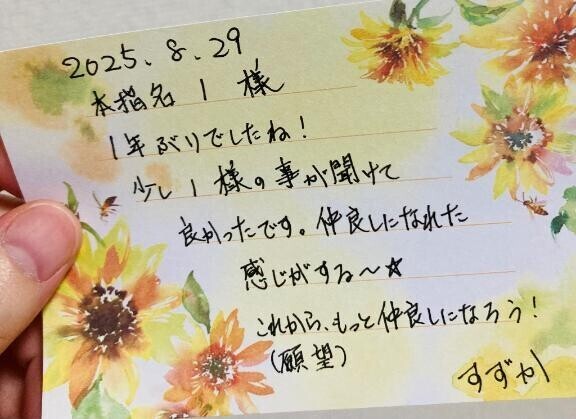 2025.8.29
本指名 1 様
1年ぶりでしたね!
少し1様の事が聞けて
良かったです。仲良しになれた
感じがする〜☆
これから、もっと仲良しになろう!
(願望)
すずか